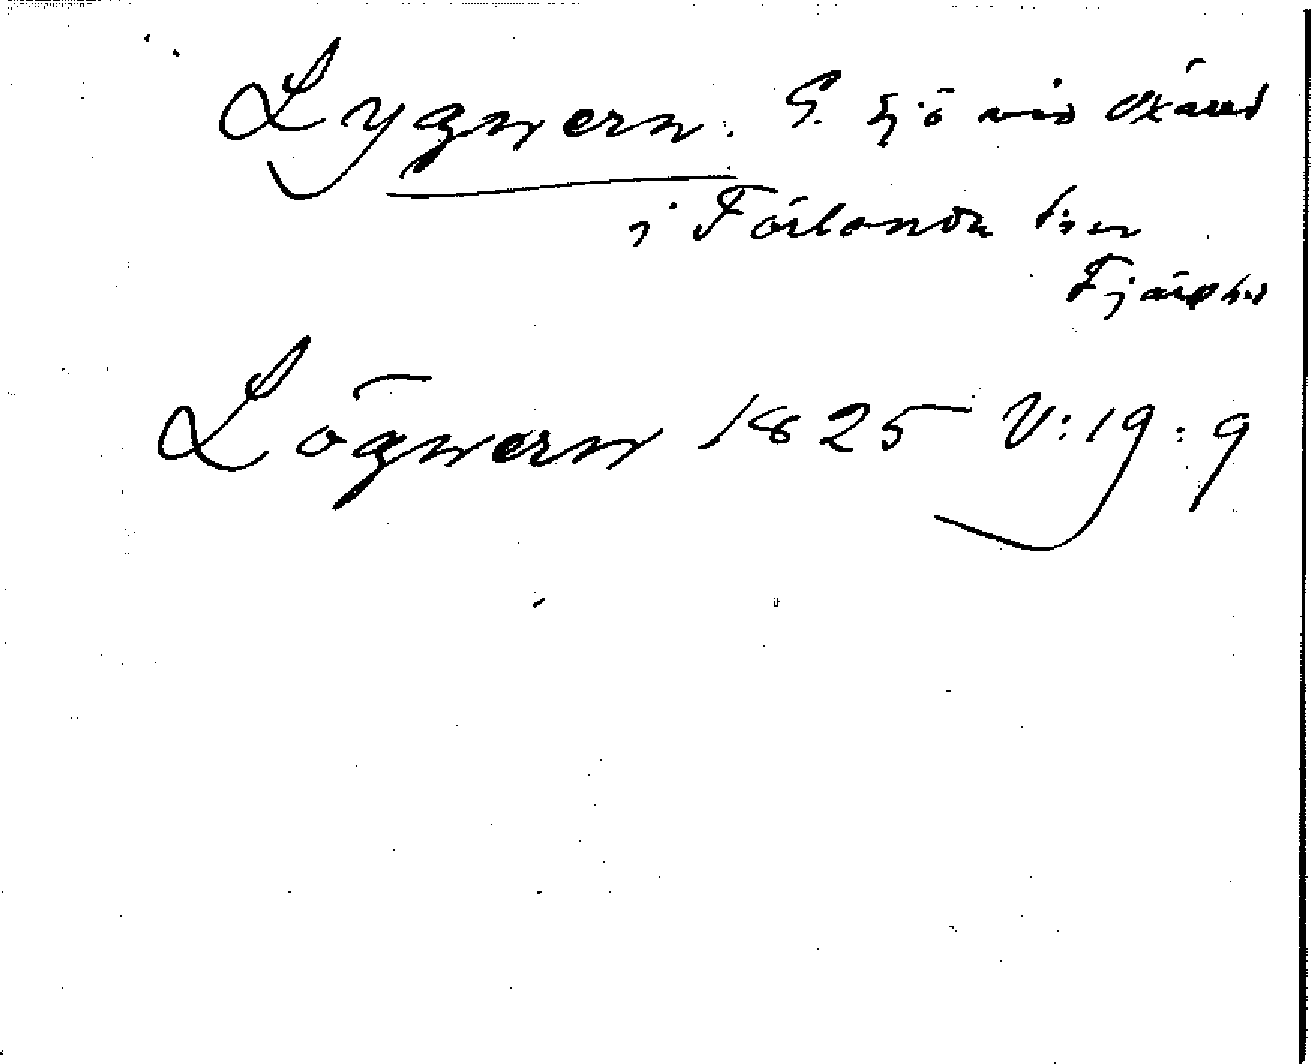 Lygnern. S. sjö vid Oxared
i Förlanda sn
Fjäre hd
Lögnern 1825 V:19:9